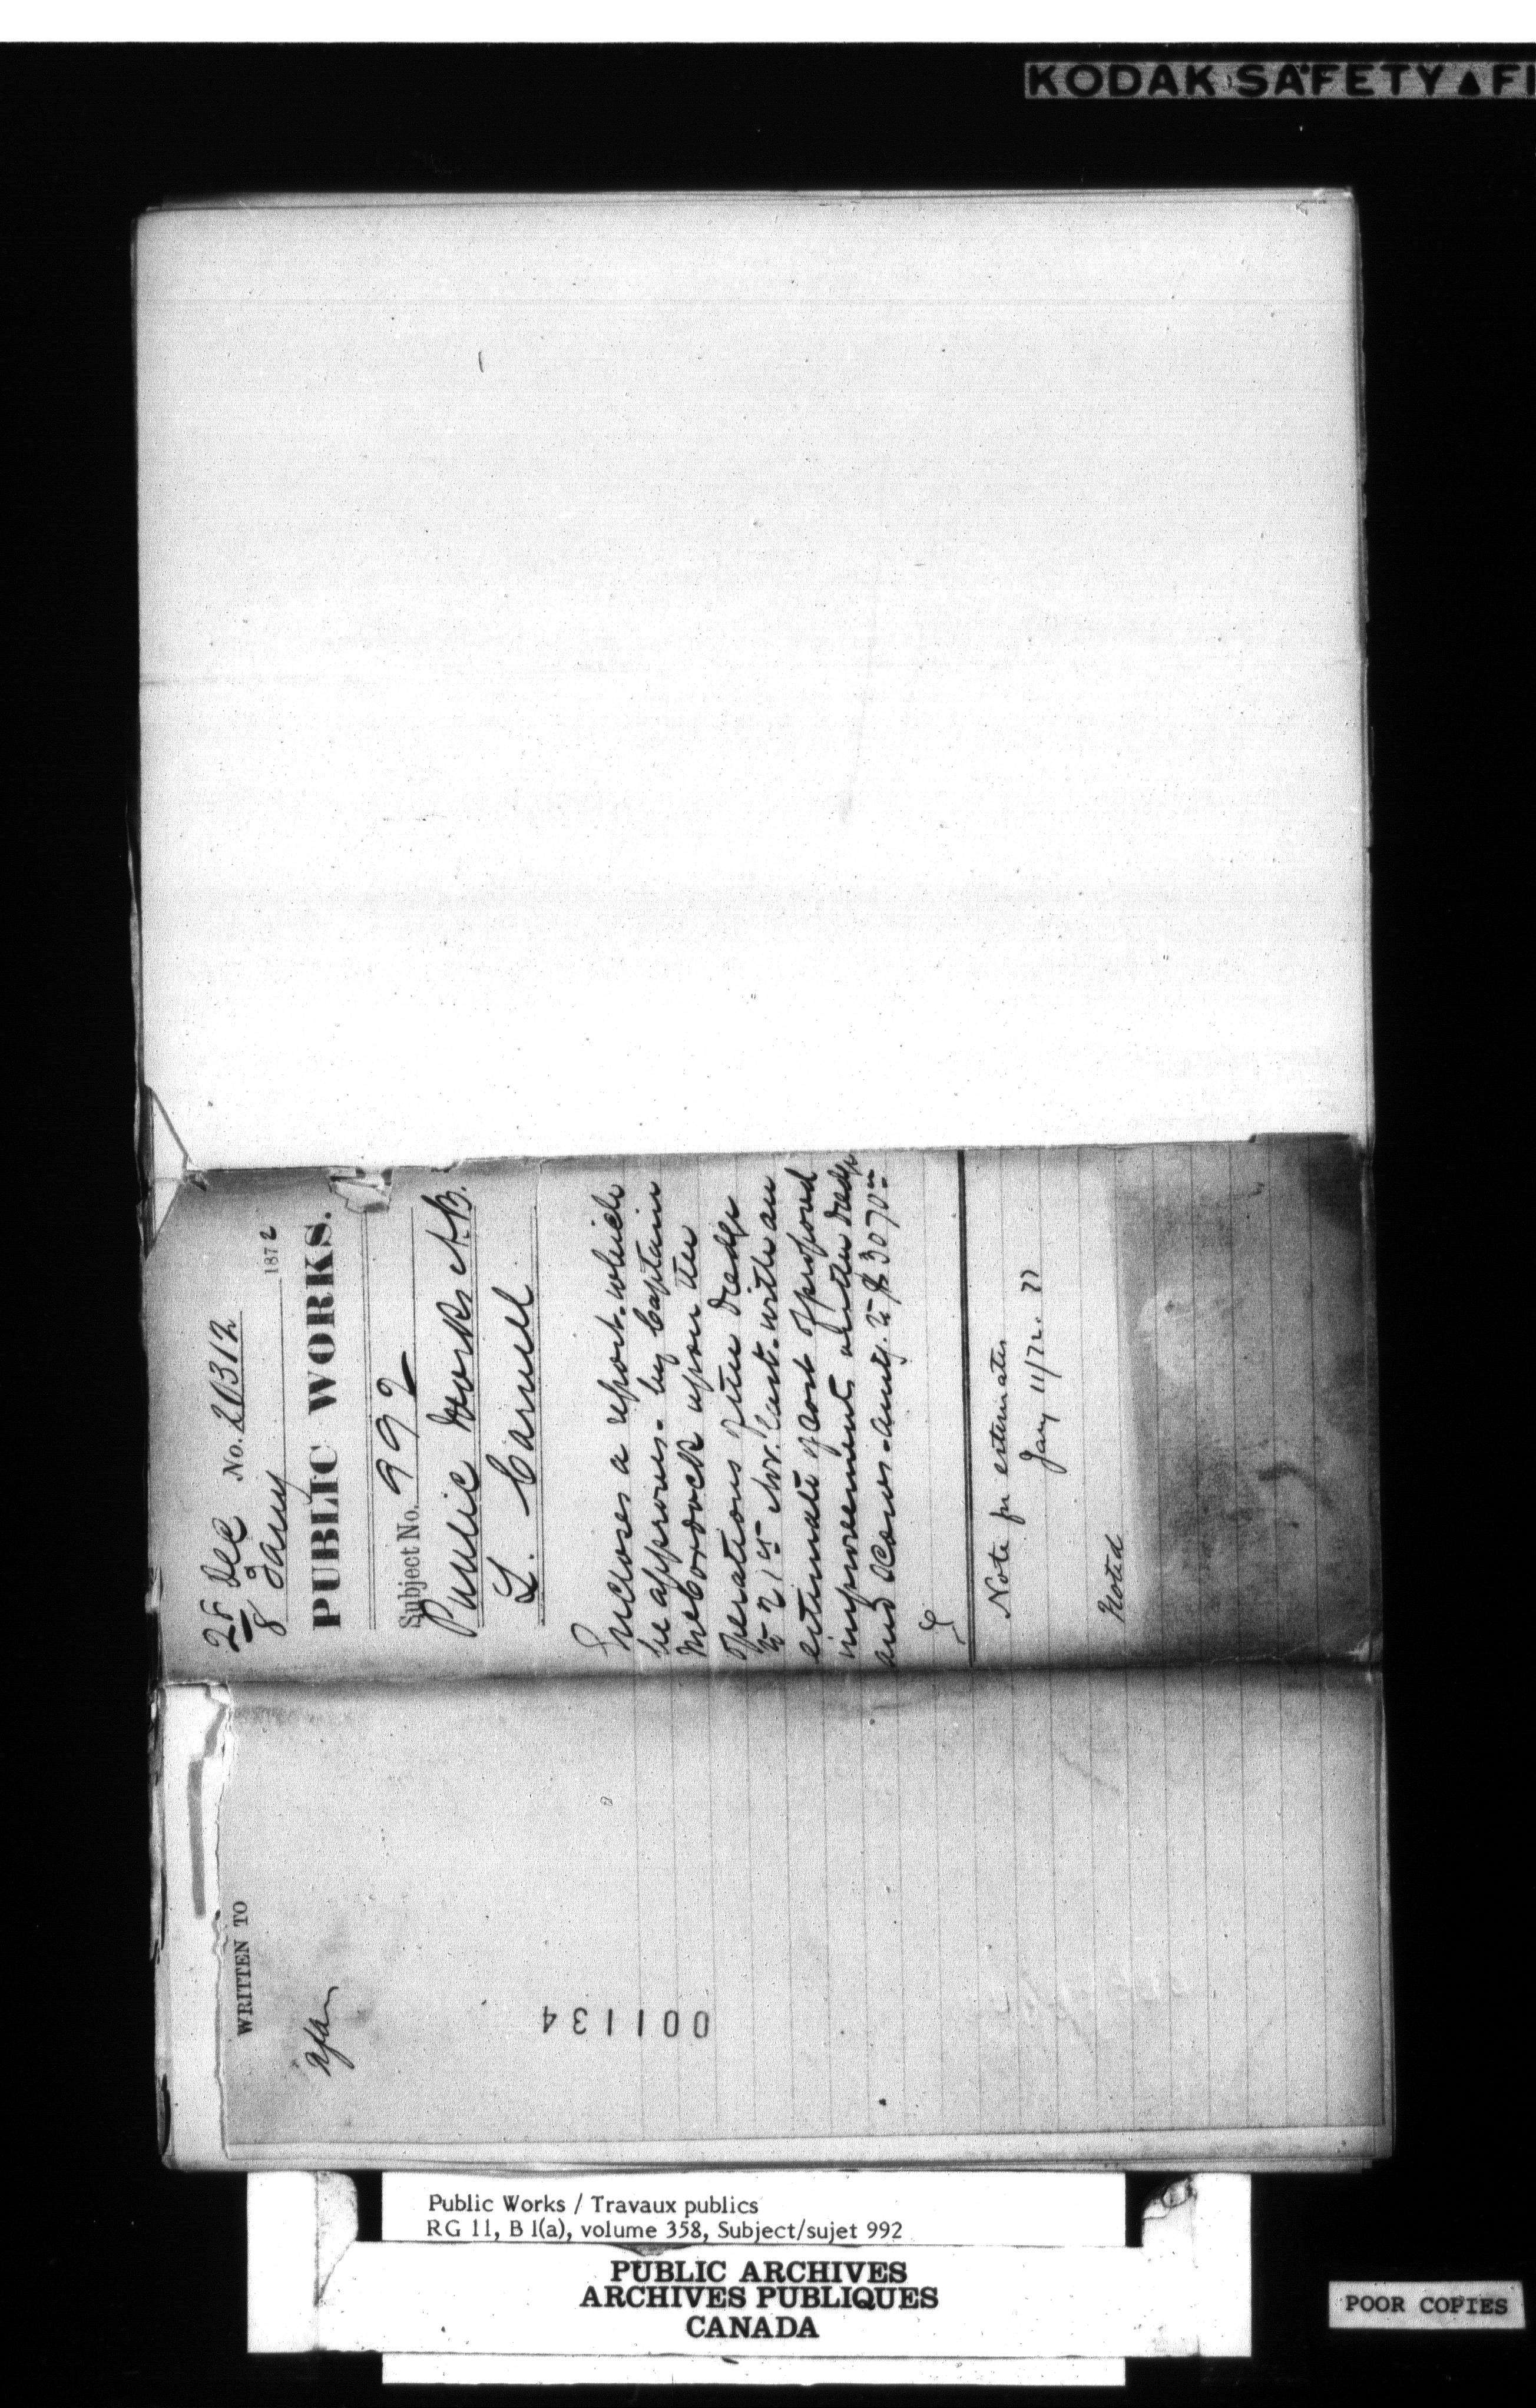 KODAK SAFETY ▲ FI
28 Dec No. 20312
8 Jany 1872
PUBLIC WORKS.
Subject No. 992
Public Works N.B.
L. Carvell
Incloses a report which
he approves - by Captain
McCordock upon the
operations of the dredge
to 21st Nov. last. with an
estimate of cost of proposed
improvements under dredge
and scows. amtg. to $3070
Note for estimates
Jany 11/72.
Noted
WRITTEN TO
001134
Public Works / Travaux publics
RG 11, B 1(a), volume 358, Subject/sujet 992
PUBLIC ARCHIVES
ARCHIVES PUBLIQUES
CANADA
POOR COPIES